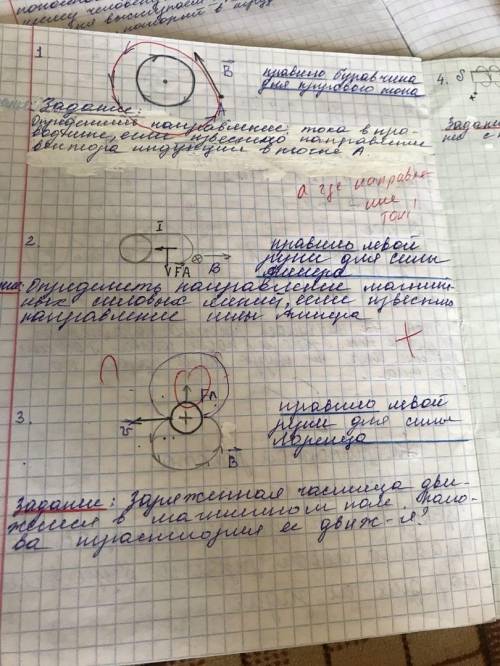 1
B
A
правило буравчика
для кругового тока
4. S
Задание:
Определить направление тока в про-
воднике, если известно направление
вектора индукции в точке А
а где направле-
ние
тока!
2.
I
FА
B
правило левой
руки для силы
Ампера
Определить направление магнит-
ных силовых линий, если известно
направление силы Ампера
+
3.
Fл
+
v
B
правило левой
руки для силы
Лоренца
Задание: Заряженная частица дви-
жется в магнитном поле. Како-
ва траектория ее движ-я?